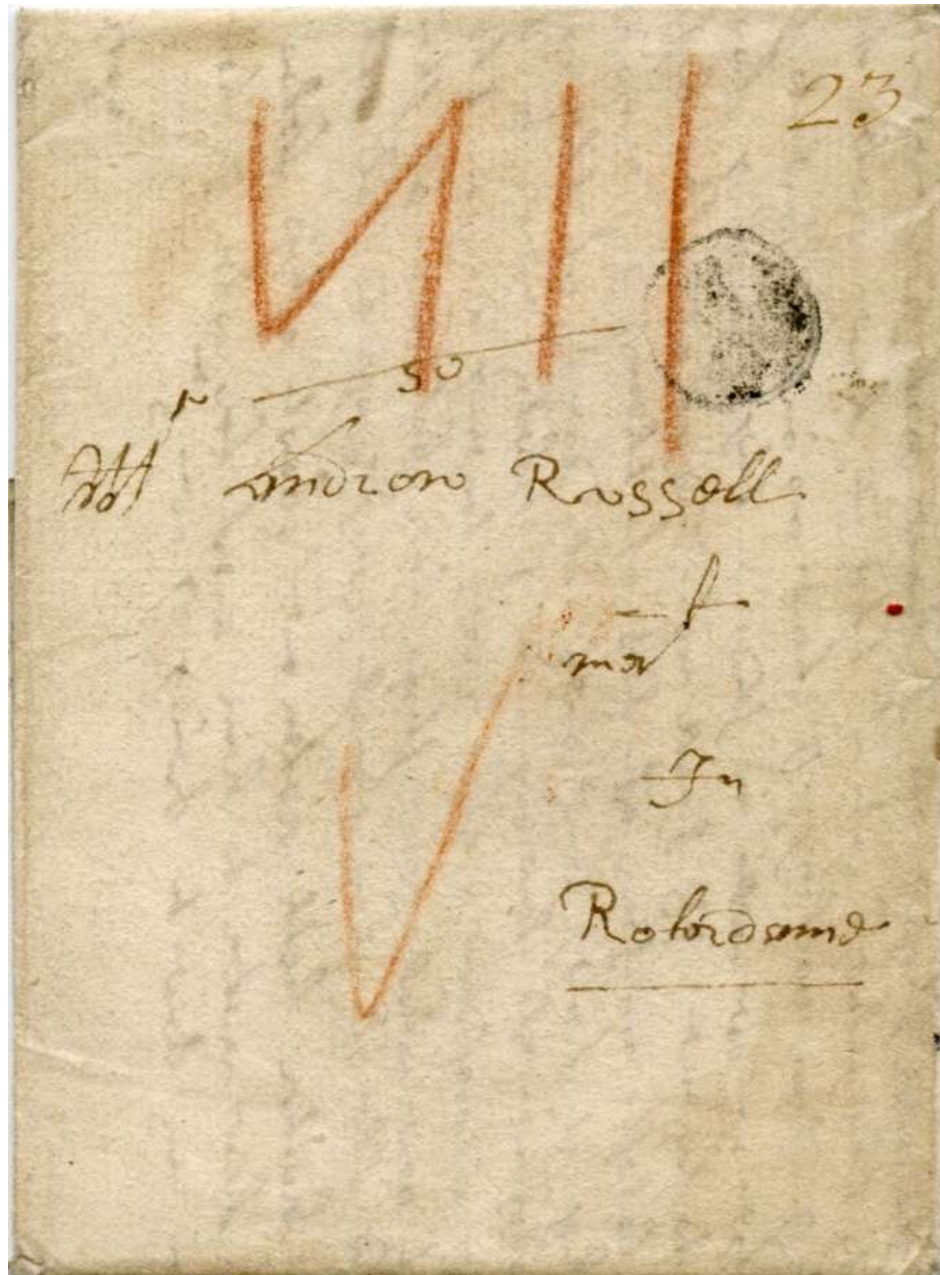 23
50
Mr Andrew Russell
mert
In
Roterdame